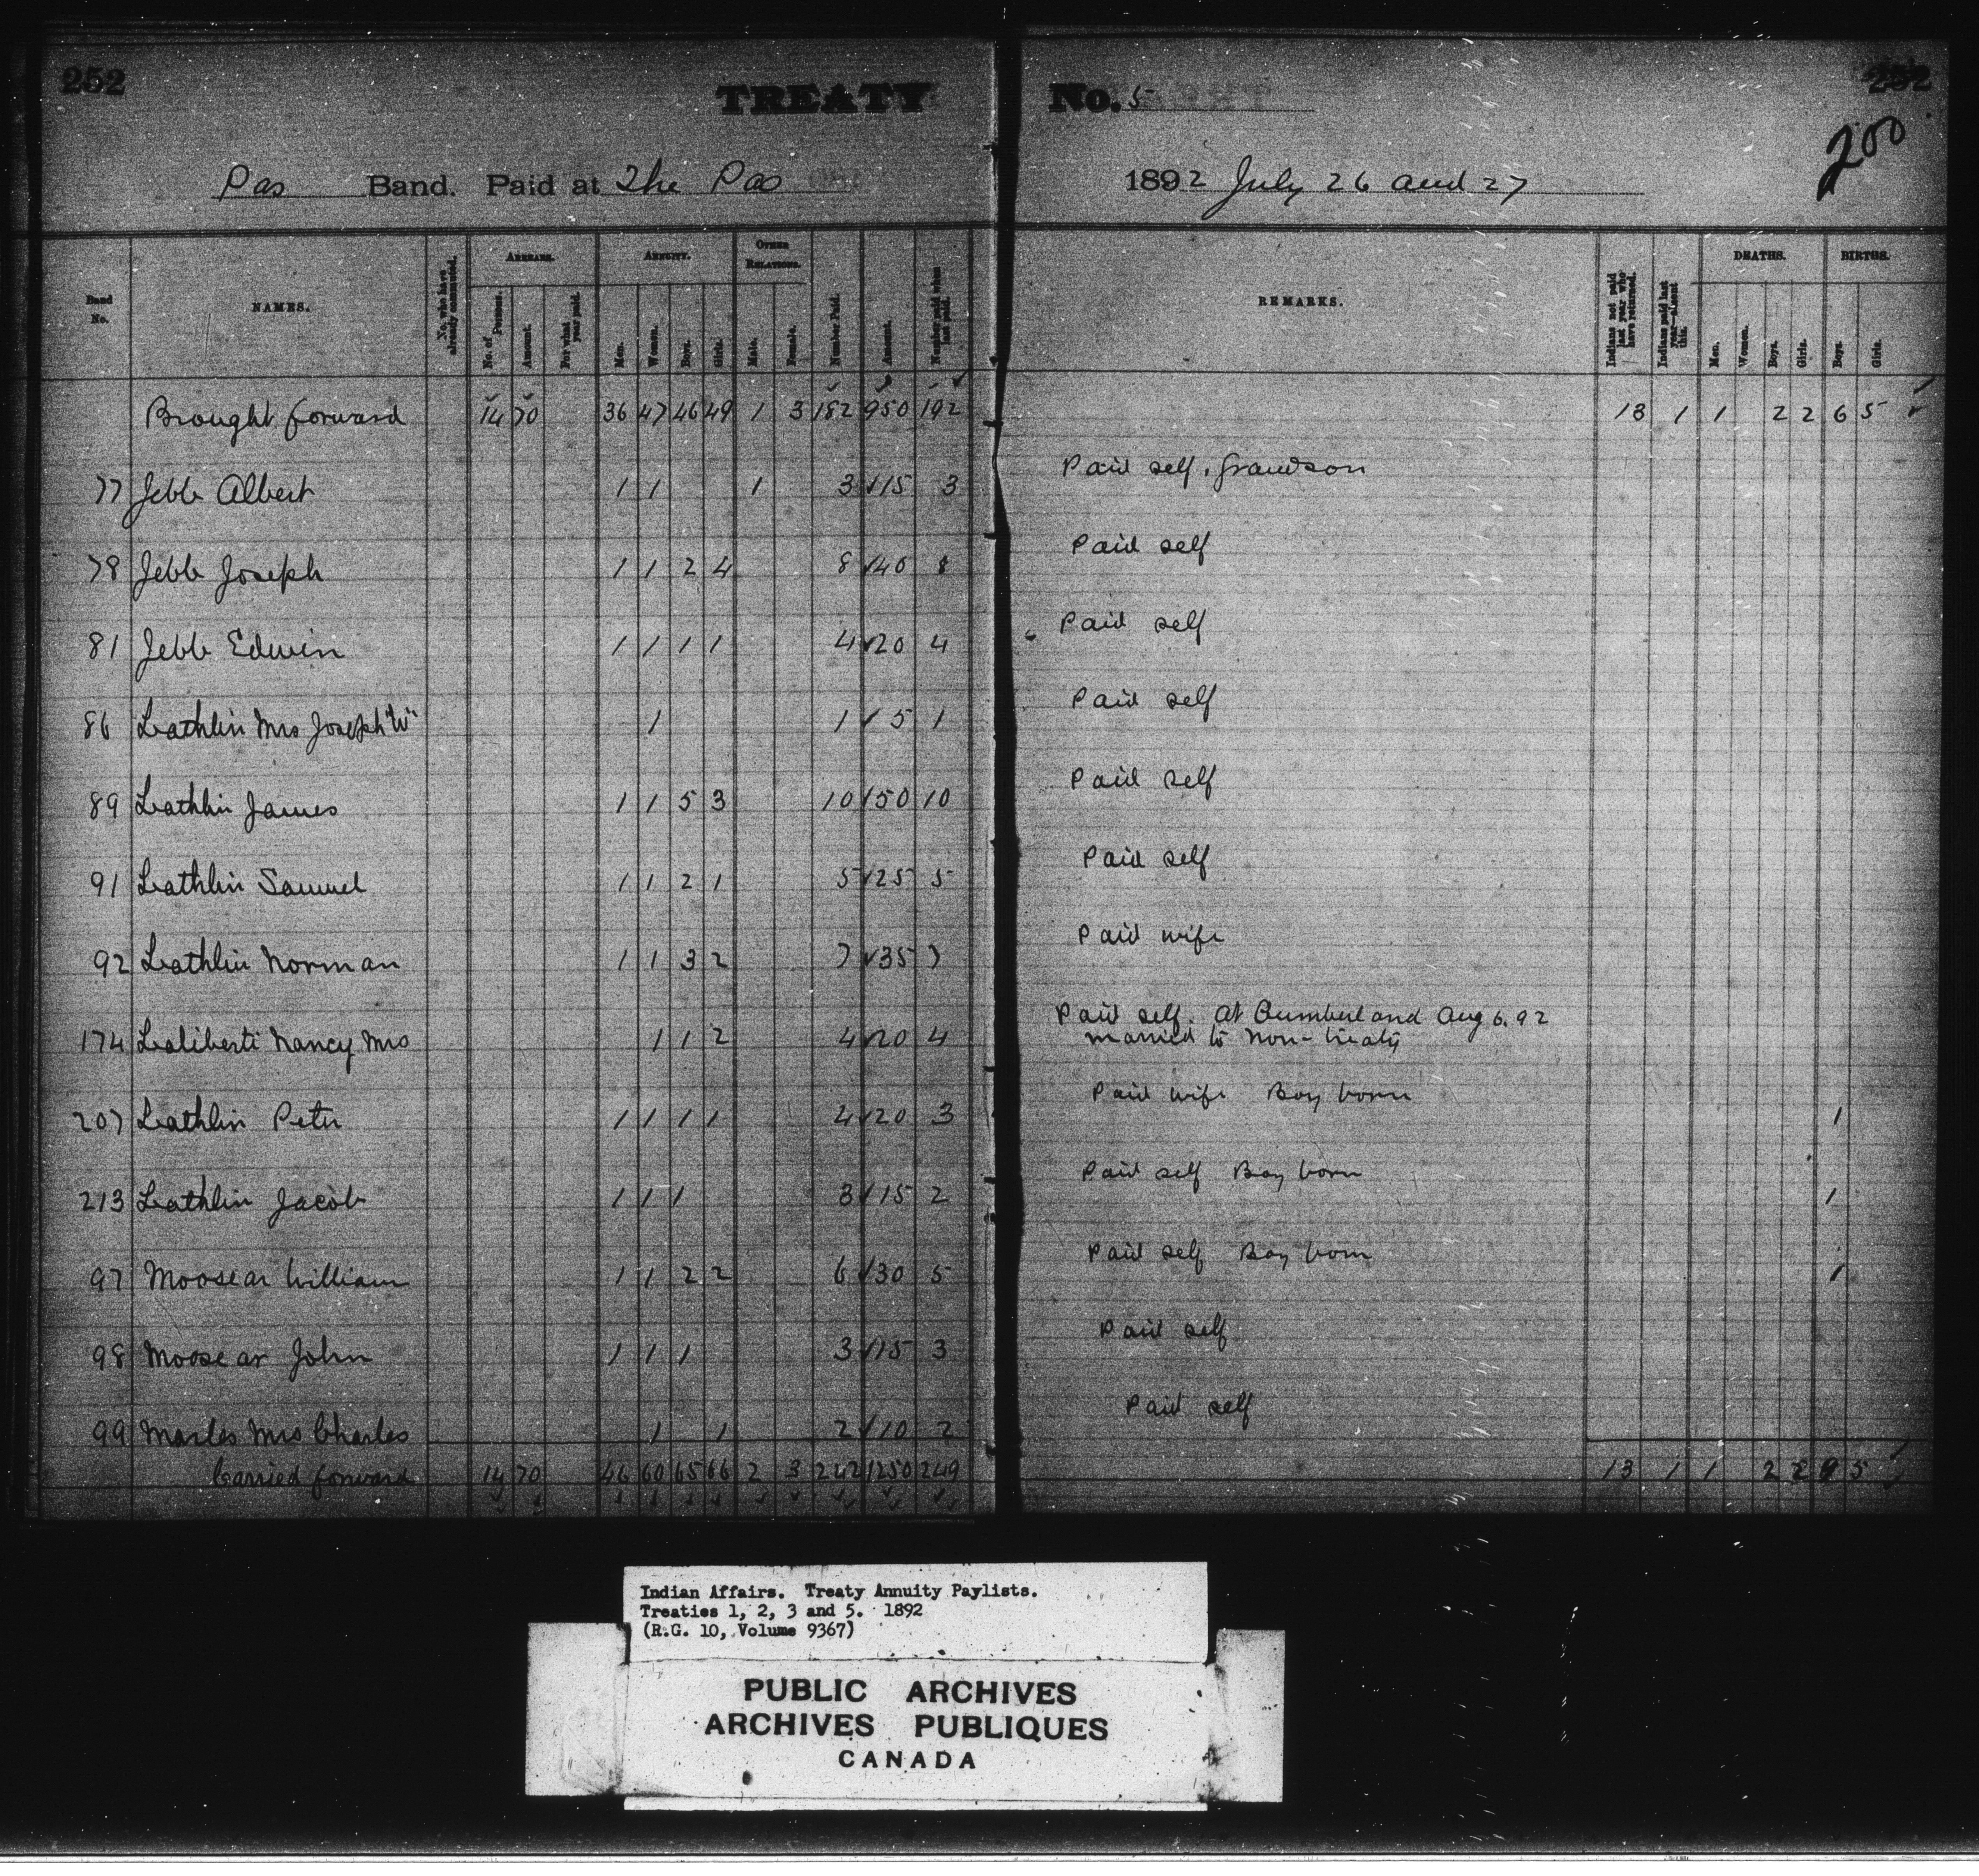 252
TREATY No. 5
252
200
Pas Band. Paid at The Pas 1892 July 26 and 27
Band No.
NAMES.
No. who have already commuted.
ARREARS.
No. of Persons.
Amount.
For what year paid.
ANNUITY.
Men.
Women.
Boys.
Girls.
OTHER RELATIONS.
Male.
Female.
Number Paid.
Amount.
Number paid when last paid.
REMARKS.
Indians not paid last year who have returned.
Indians paid last year—absent this.
DEATHS.
Men.
Women.
Boys.
Girls.
BIRTHS.
Boys.
Girls.
Brought forward 14 70 36 47 46 49 1 3 182 950 192 13 1 1 2 2 6 5
77 Jebb Albert 1 1 1 3 15 3 Paid self, grandson
78 Jebb Joseph 1 1 2 4 8 40 8 Paid self
81 Jebb Edwin 1 1 1 1 4 20 4 Paid self
86 Lathlin Mrs Joseph "W" 1 1 5 1 Paid self
89 Lathlin James 1 1 5 3 10 50 10 Paid self
91 Lathlin Samuel 1 1 2 1 5 25 5 Paid self
92 Lathlin Norman 1 1 3 2 7 35 7 Paid wife
174 Laliberti Nancy Mrs 1 1 2 4 20 4 Paid self. At Cumberland Aug 6. 92
married to non-treaty
207 Lathlin Peter 1 1 1 1 4 20 3 Paid wife Boy born 1
213 Lathlin Jacob 1 1 1 3 15 2 Paid self Boy born 1
97 Moosear William 1 1 2 2 6 30 5 Paid self Boy born 1
98 Moosear John 1 1 1 3 15 3 Paid self
99 Marles Mrs Charles 1 1 2 10 2 Paid self
Carried forward 14 70 46 60 65 66 2 3 242 1250 249 13 1 1 2 2 9 5
Indian Affairs. Treaty Annuity Paylists.
Treaties 1, 2, 3 and 5. 1892
(R.G. 10, Volume 9367)
PUBLIC ARCHIVES
ARCHIVES PUBLIQUES
CANADA